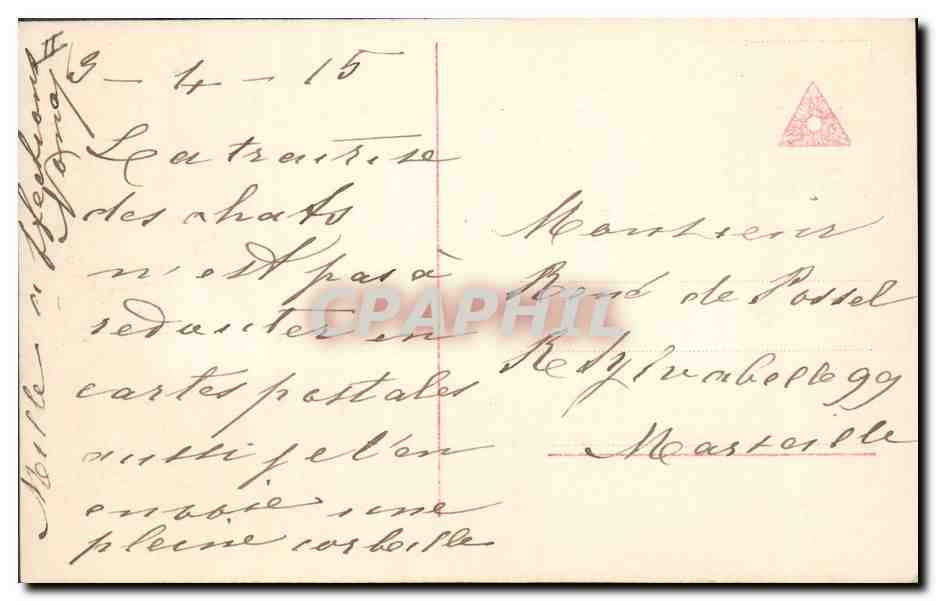 9 - 4 - 15
La traitrise
des chats
n'est pas à
redouter en
cartes postales
aussi je t'en
envoie une
pleine corbeille
Mille affections
Monsieur
René de Possel
R Sylvabelle 99
Marseille
CPAPHIL